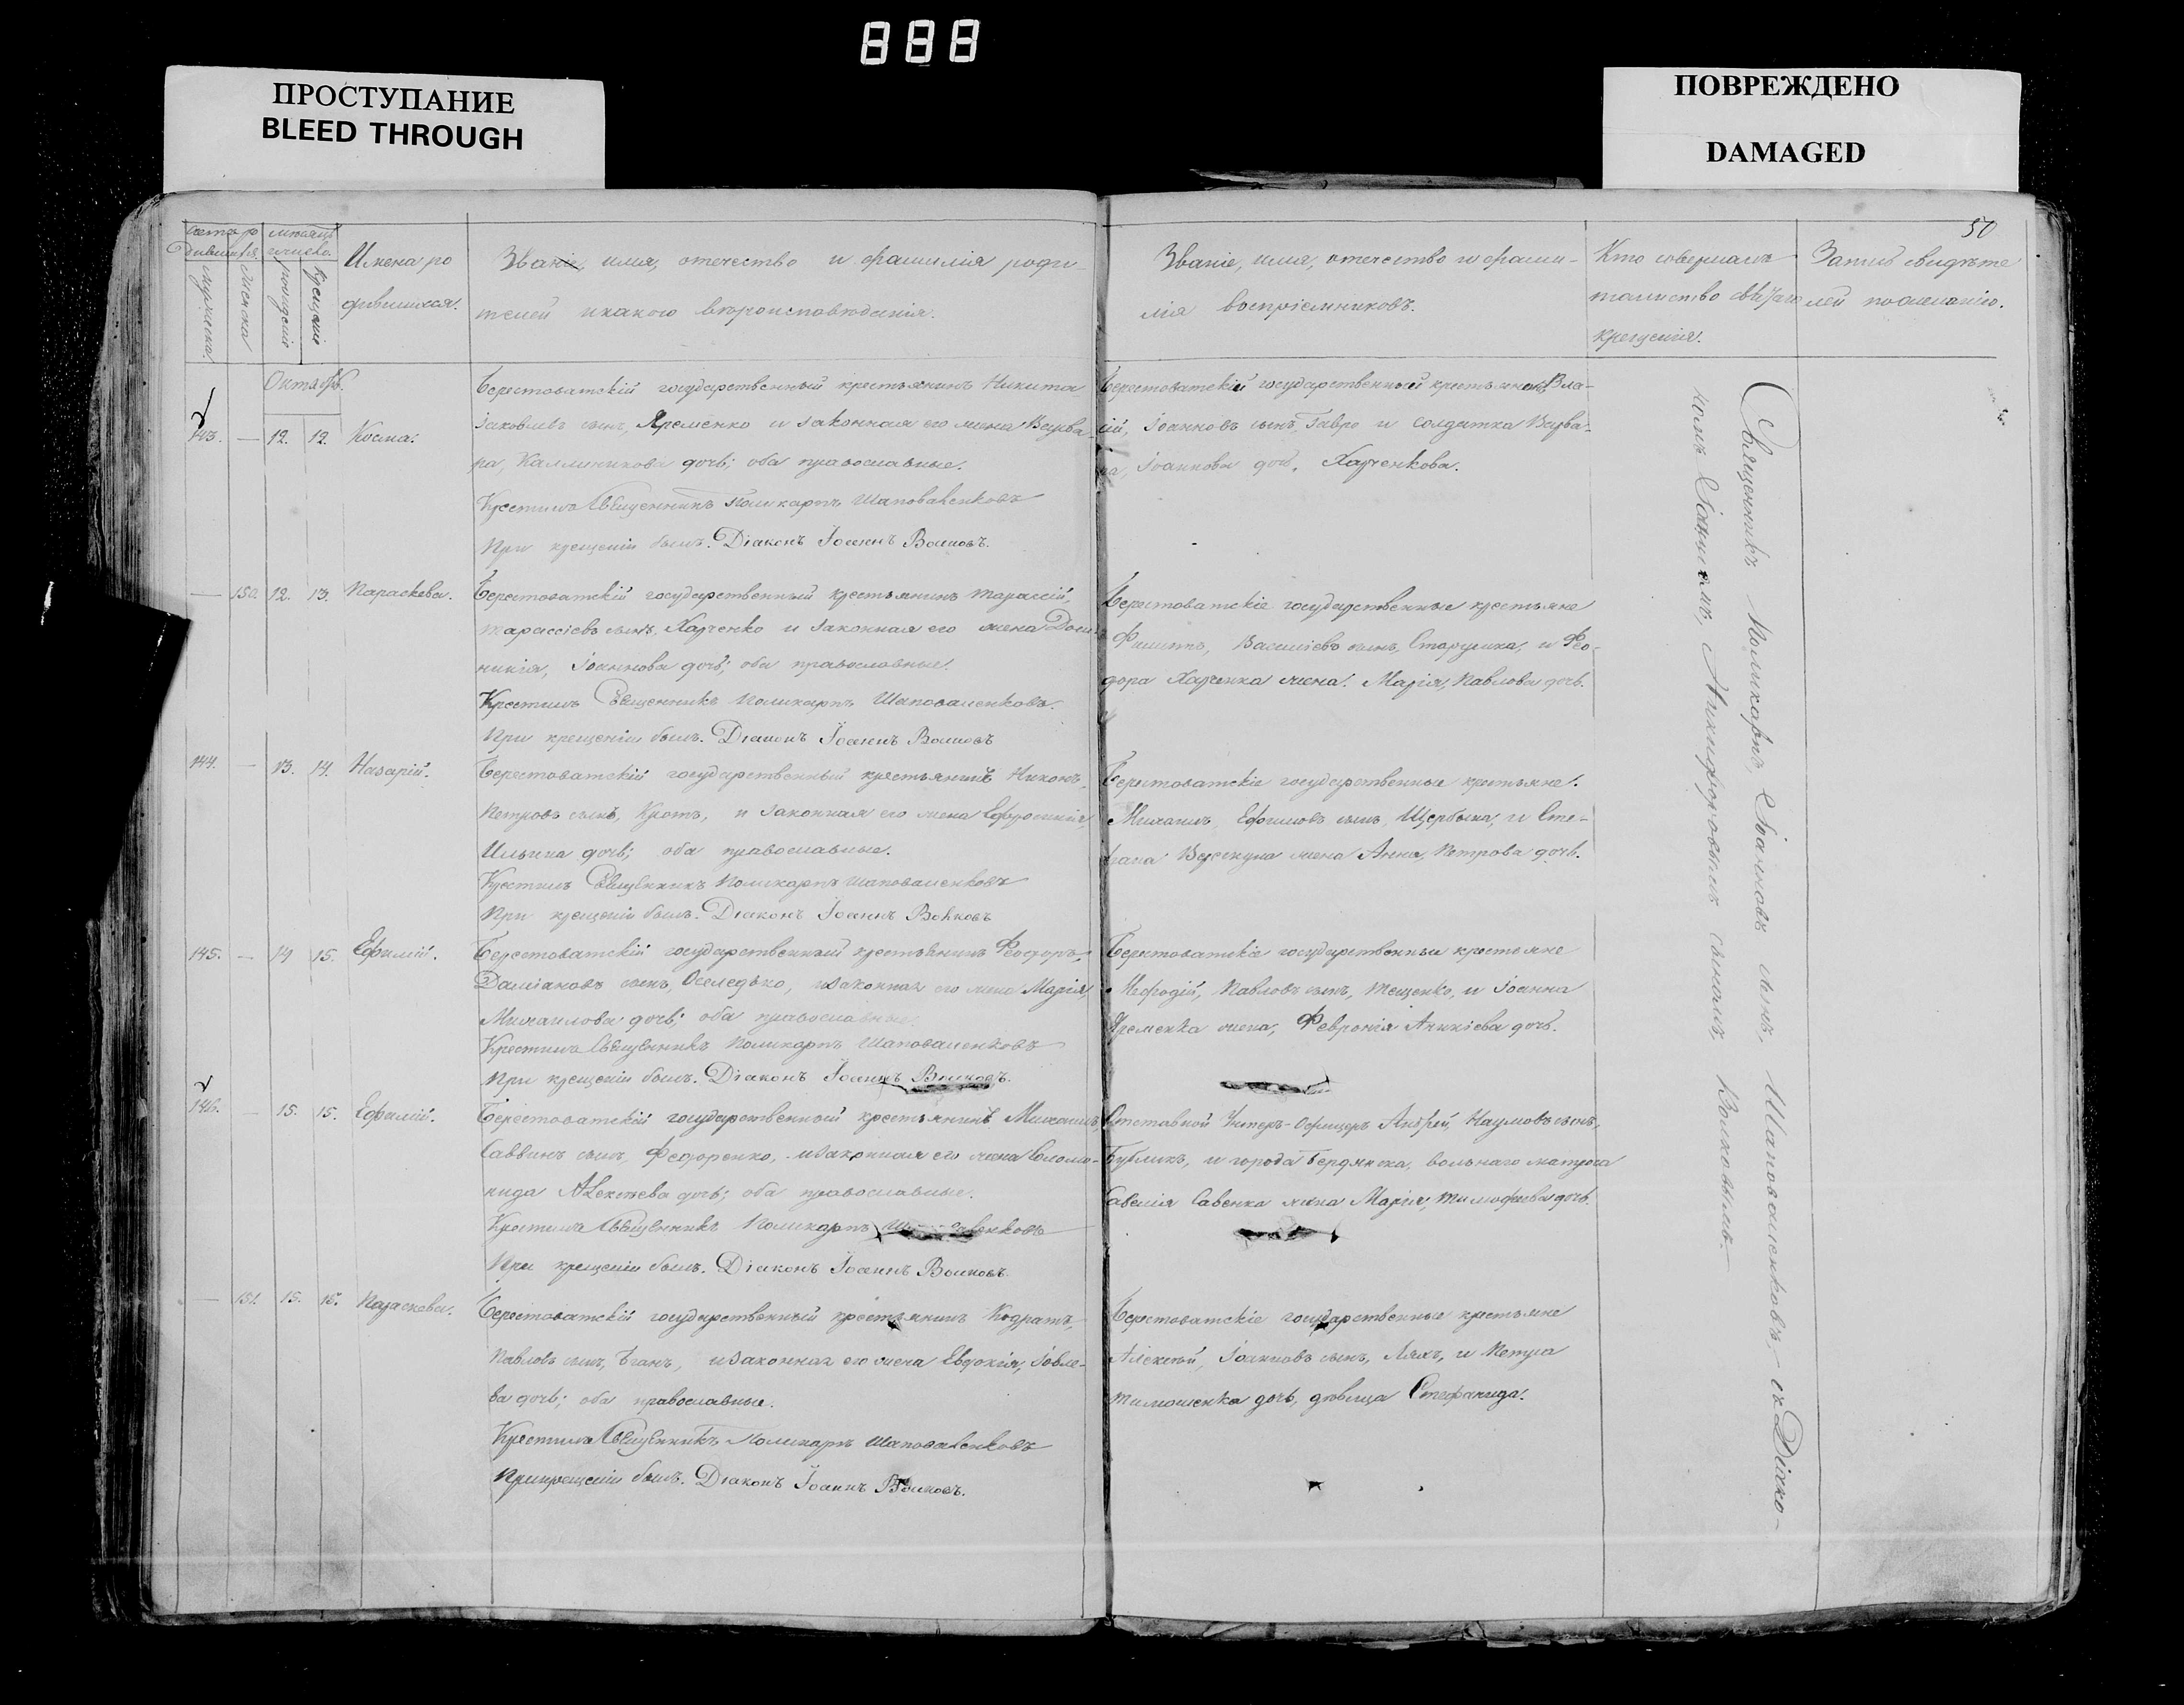 888
ПРОСТУПАНИЕ
BLEED THROUGH
ПОВРЕЖДЕНО
DAMAGED
50
Имена ро
дившихся.
Званіе, имя, отечество и фамилія роди-
телей и какого вѣроисповѣданія.
Званіе, имя, отечество и фами-
лія воспріемниковъ.
Кто совершалъ
таинство святаго
крещенія.
Записъ свидѣте
лей по желанію.
Октябрь.
143. — 12. 12. Косма.
Берестоватскій государственный крестьянинъ Никита
Іаковлевъ сынъ, Яременко и законная его жена Варва-
ра, Каллиникова дочь; оба православные.
Крестилъ Священникъ Поликарпъ Шаповаленковъ
При крещеніи былъ. Діаконъ Іоаннъ Волковъ.
Берестоватскій государственный крестьянинъ Вла-
сій, Іоанновъ сынъ, Гавро и солдатка Варва-
ра, Іоаннова доч. Харченкова.
— 150. 12. 13. Параскева.
Берестоватскій государственный крестьянинъ Тарасій,
Тарасіевъ сынъ, Харченко и законная его жена Дом-
никія, Іоаннова дочь; оба православные.
Крестилъ Священникъ Поликарпъ Шаповаленковъ.
При крещеніи былъ. Діаконъ Іоаннъ Волковъ
Берестоватскіе государственные крестьяне
Филиппъ, Василіевъ сынъ, и Фео-
дора Харченка жена. Марія, Павлова дочь.
144. — 13. 14. Назарій.
Берестоватскій государственный крестьянинъ Никонъ,
Петровъ сынъ, Кротъ, и законная его жена Ефросинія,
Ильина дочь; оба православные.
Крестилъ Священникъ Поликарпъ Шаповаленковъ
При крещеніи былъ. Діаконъ Іоаннъ Волковъ
Берестоватскіе государственные крестьяне.
Михаилъ, Ефимовъ сынъ, Щербина, и Сте-
фана жена Анна, Петрова дочь.
145. — 14 15. Ефимій.
Берестоватскій государственный крестьянинъ Феодоръ,
Даміановъ сынъ, Оселедько, и законная его жена Марія,
Михаилова дочь; оба православные.
Крестилъ Священникъ Поликарпъ Шаповаленковъ
При крещеніи былъ. Діаконъ Іоаннъ Волковъ.
Берестоватскіе государственные крестьяне
Мефодій, Павловъ сынъ, Тещенко, и Іоанна
Яременка жена, Февронія Аникіева дочь.
146. — 15. 15. Ефимій.
Берестоватскій государственный крестьянинъ Михаилъ,
Саввинъ сынъ, Федоренко, и законная его жена Соломо-
нида Алексѣева дочь; оба православные.
Крестилъ Священникъ Поликарпъ
При крещеніи былъ. Діаконъ Іоаннъ Волковъ.
Отставной Унтеръ-Офицеръ Андрей, Наумовъ сынъ,
Бубликъ, и города Бердянска, вольнаго матроса
Савелія Савенка жена Марія, Тимофеева дочь.
— 151. 15. 16. Параскева.
Берестоватскій государственный крестьянинъ Кодратъ,
Павловъ сынъ, и законная его жена Евдокія, Іовле-
ва дочь; оба православные.
Крестилъ Священникъ Поликарпъ Шаповаленковъ
При крещеніи былъ. Діаконъ Іоаннъ Волковъ.
Берестоватскіе государственные крестьяне
Алексѣй, Іоанновъ сынъ, Ляхъ, и Петра
Тимошенка дочь, дѣвица Стефанида.
Священникъ Поликарпъ, Іоанновъ сынъ, Шаповаленковъ, съ Діако-
номъ Іоанномъ, Никифоровымъ сыномъ Волковымъ.